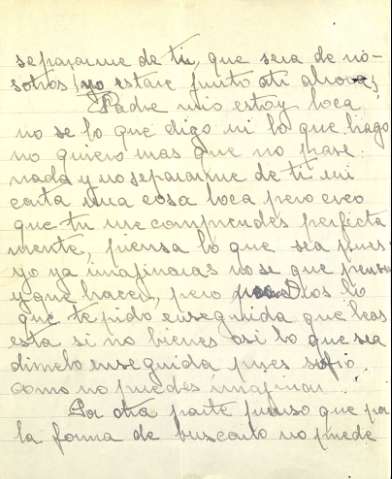 separarme de ti, que sera de no-
sotros, yo estare junto ati ahora,
Padre mio estoy loca
no se lo que digo ni lo que hago
no quiero mas que no pase
nada y no separarme de ti mi
carta una cosa loca pero creo
que tu me comprendes perfecta
mente, piensa lo que sea pues
yo ya imajinaras no se que pensar
y que hacer, pero por Dios lo
que te pido enseguida que leas
esta si no bienes o si lo que sea
dimelo enseguida pues sufro
como no puedes imaginar.
Por otra parte pienso que por
la forma de buscarlo no puede